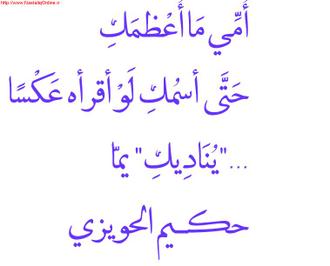 http://www.NastaliqOnline.ir
أُمِّي مَا أَعْظَمَكِ
حَتَّى أسمُكِ لَوْ أقرأه عَكْسًا
..."يُنَادِيكِ" يمّا
حكيم الحويزي